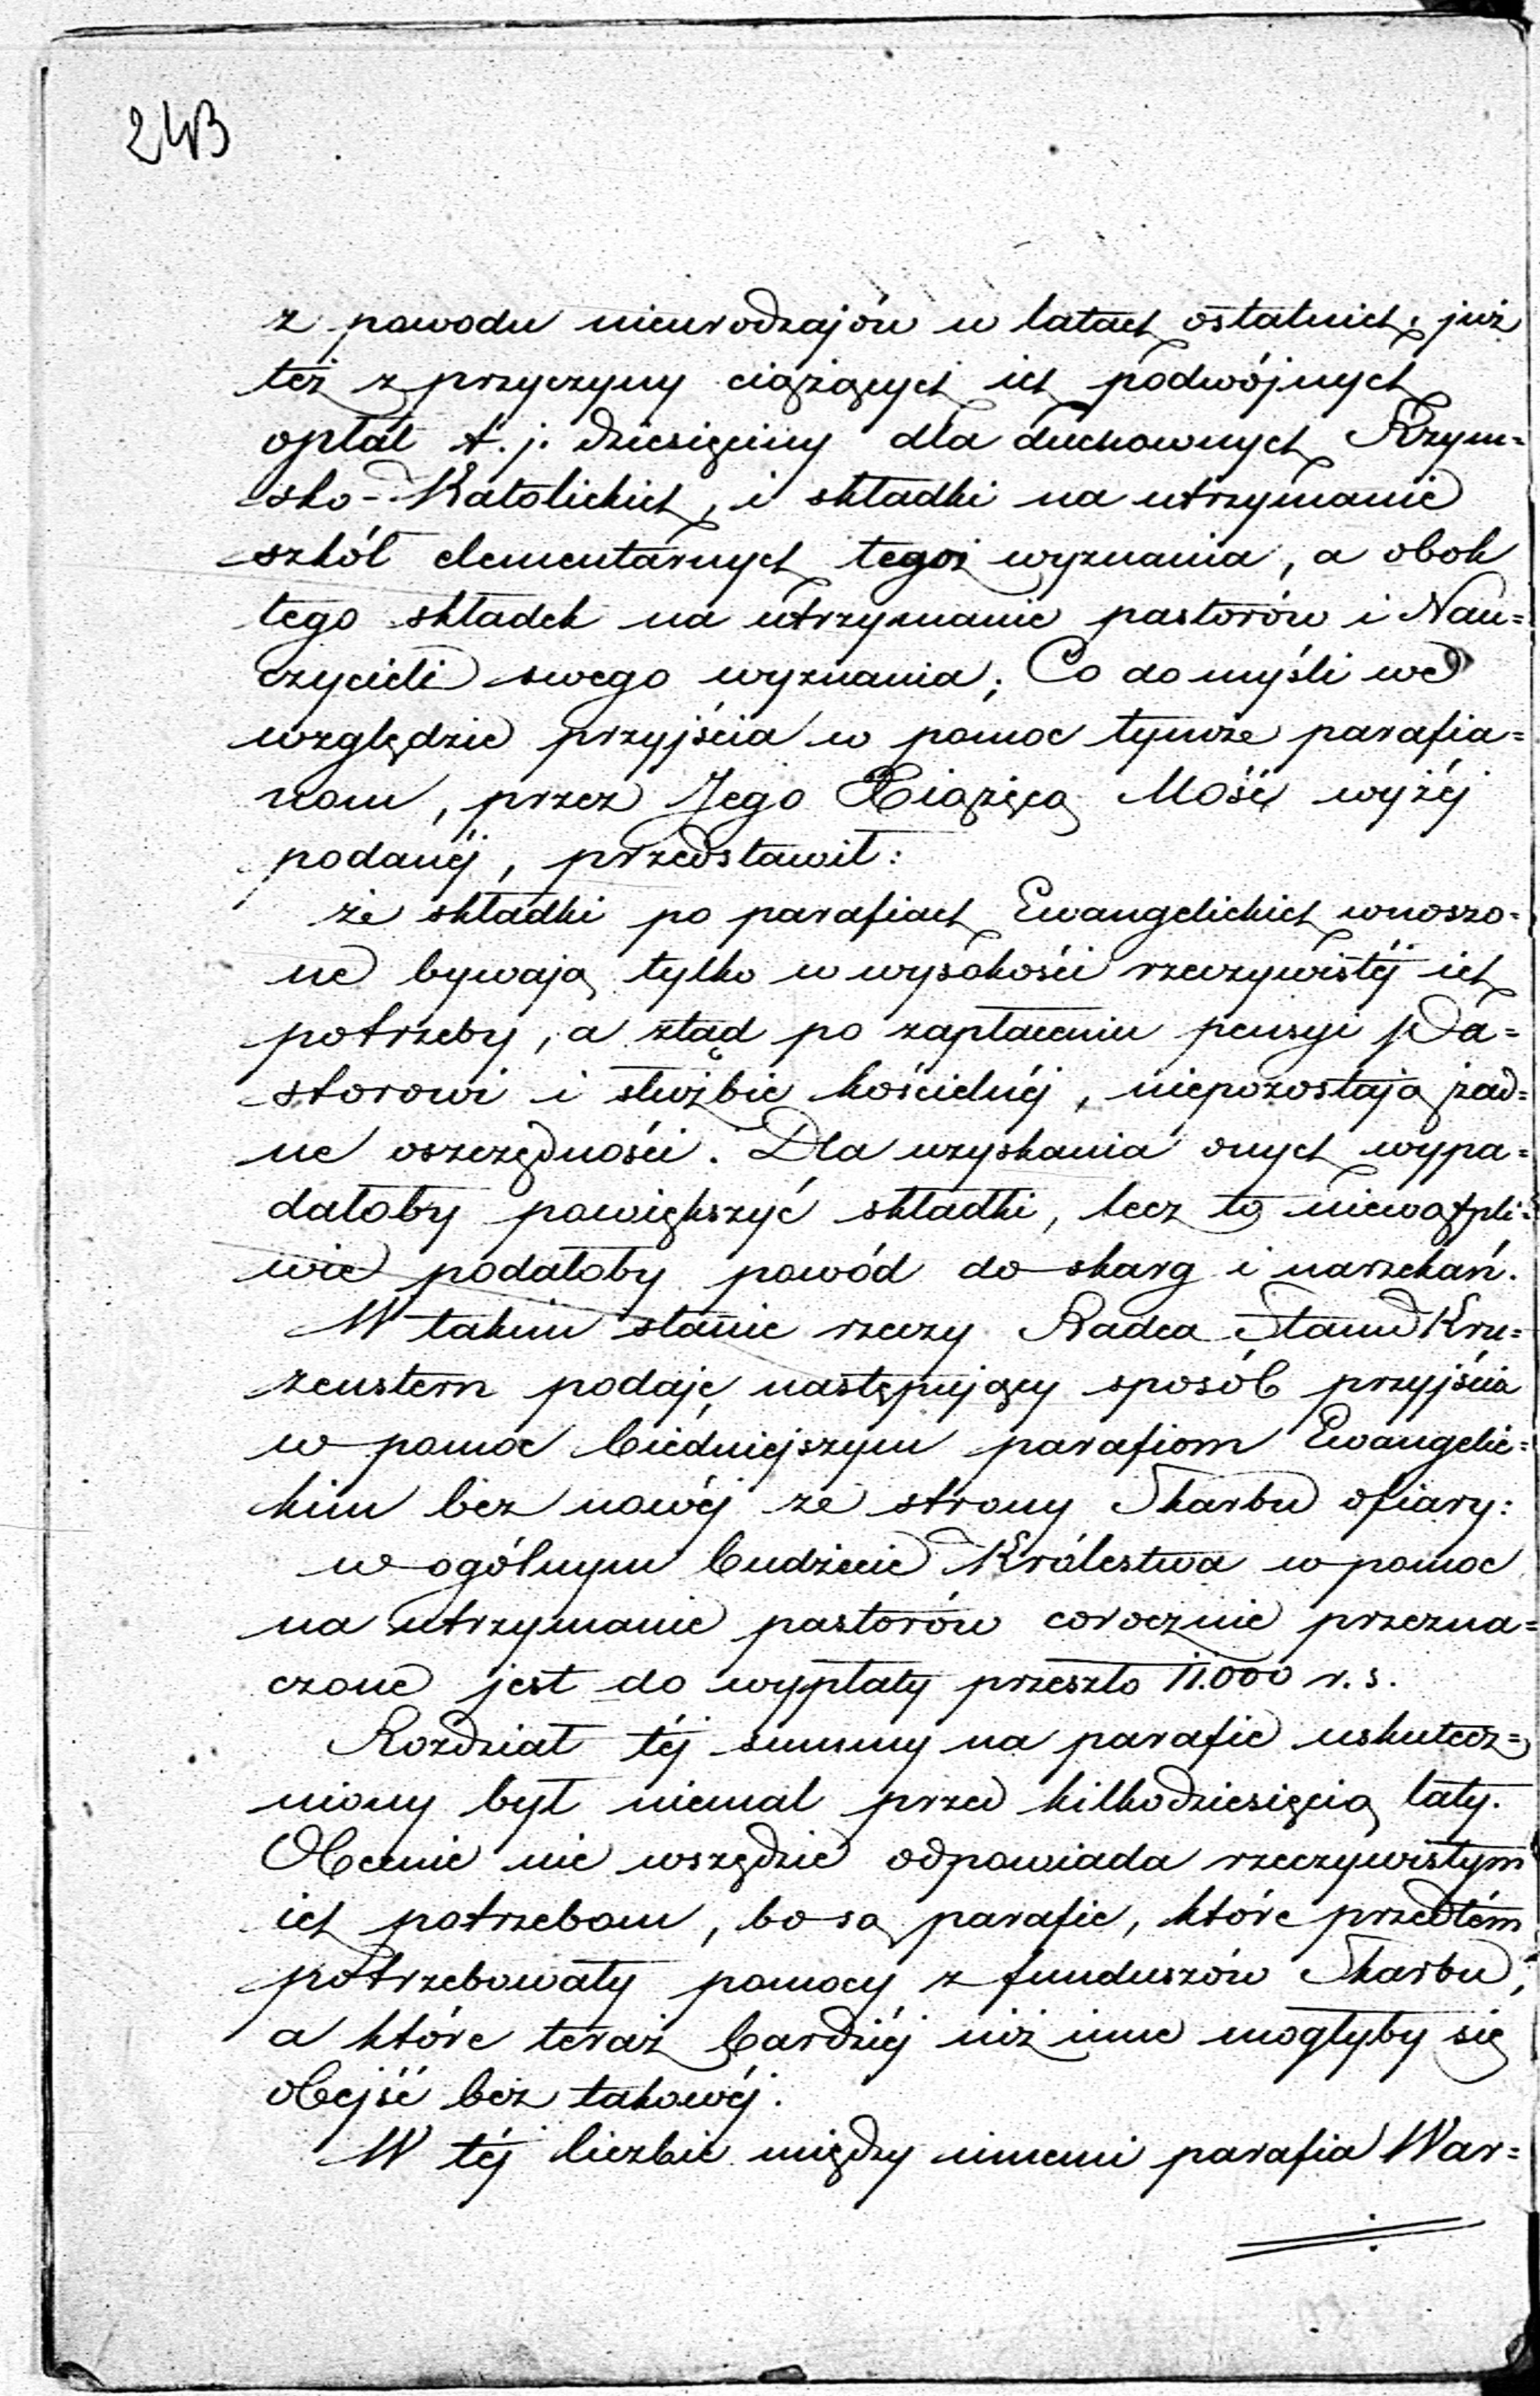 243
z powodu nieurodzajów w latach ostatnich, już
też z przyczyny ciążących ich podwójnych
opłat t. j. dziesięciny dla duchownych Rzym=
sko-Katolickich, i składki na utrzymanie
szkół elementarnych tegoż wyznania, a obok
tego składek na utrzymanie pastorów i Nau=
czycieli swego wyznania; Co do myśli we
względzie przyjścia w pomoc tymże parafia=
nom, przez Jego Xiążęcą Mość wyżéj
podanéj, przedstawił:
że składki po parafiach Ewangelickich wnoszo=
ne bywają tylko w wysokości rzeczywistéj ich
potrzeby, a ztąd po zapłaceniu pensyi Pa=
storowi i służbie kościelnéj, niepozostają żad=
ne oszczędności. Dla uzyskania onych wypa=
dałoby powiększyć składki, lecz to niewątpli=
wie podałoby powód do skarg i narzekań.
W takim stanie rzeczy Radca Stanu Kru=
zenstern podaje następujący sposób przyjścia
w pomoc biédniejszym parafiom Ewangelic=
kim bez nowéj ze strony Skarbu ofiary:
w ogólnym budżecie Królestwa w pomoc
na utrzymanie pastorów corocznie przezna=
czone jest do wypłaty przeszło 11.000 r. s.
Rozdział téj summy na parafie uskutecz=
niony był niemal przed kilkodziesięcią laty.
Obecnie nie wszędzie odpowiada rzeczywistym
ich potrzebom, bo są parafie, które przedtém
potrzebowały pomocy z funduszów Skarbu,
a które teraz bardziéj niż inne mogłyby się
obejść bez takowéj.
W téj liczbie między innemi parafia War=